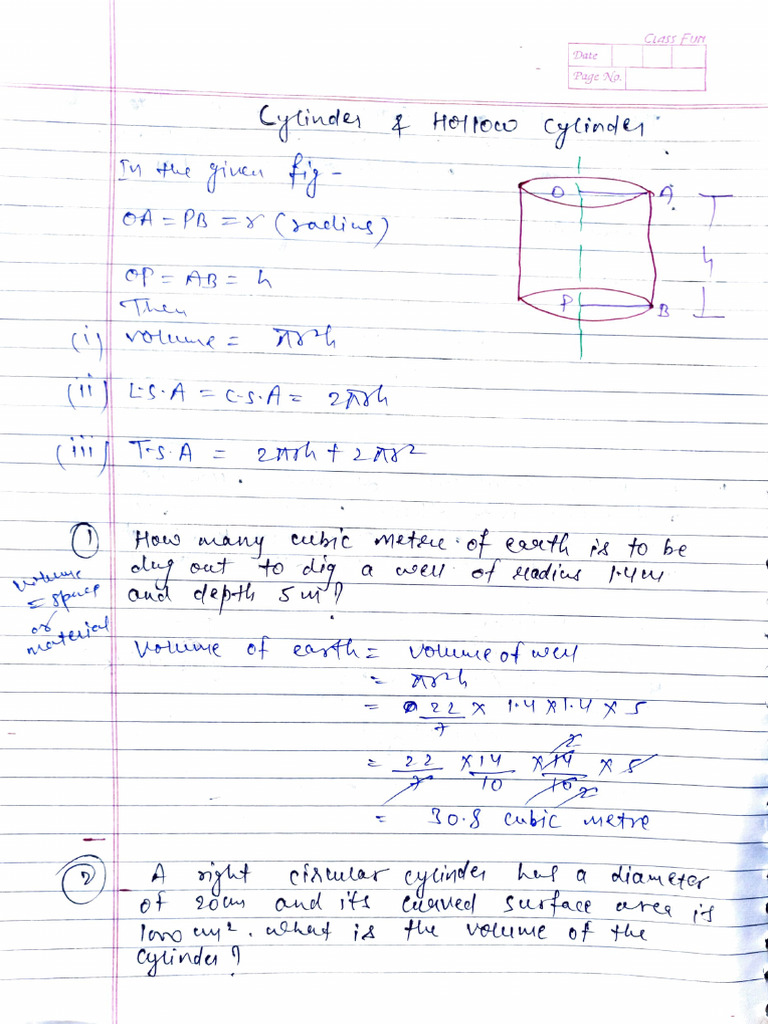 Class Fun
Date
Page No.
Cylinder & Hollow Cylinder
In the given fig -
OA = PB = r (radius)
OP = AB = h
Then
(i) volume = πr²h
(ii) L.S.A = C.S.A = 2πrh
(iii) T.S.A = 2πrh + 2πr²
O A
h
P B
① How many cubic metre of earth is to be
dug out to dig a well of radius 1.4m
and depth 5m?
volume
= space
or
material
Volume of earth = volume of well
= πr²h
= 22/7 × 1.4 × 1.4 × 5
= 22/7 × 14/10 × 14/10 × 5
2
2
= 30.8 cubic metre
② A right circular cylinder has a diameter
of 20cm and its curved surface area is
1000 cm². what is the volume of the
cylinder?